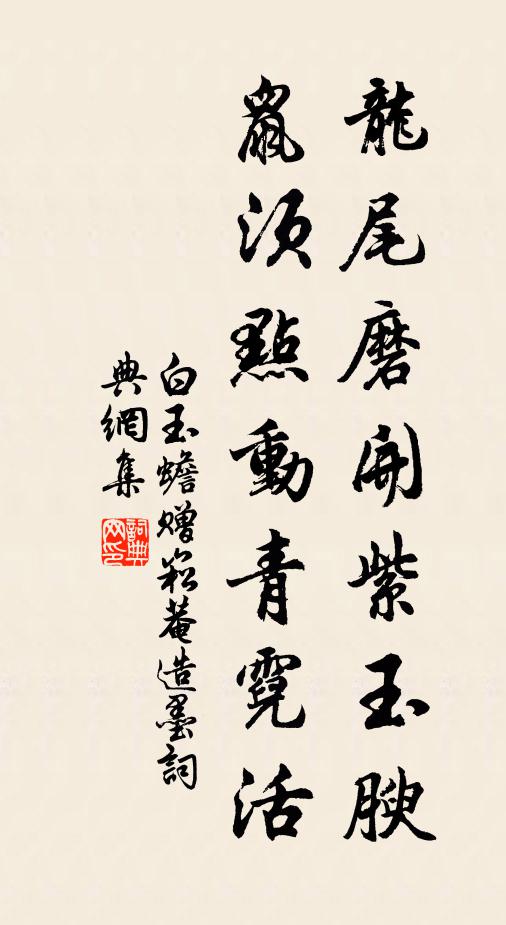 龍尾磨開紫玉腴
鼠須點動青霓活
白玉蟾贈崧菴造墨詞
典網集
詞典網印